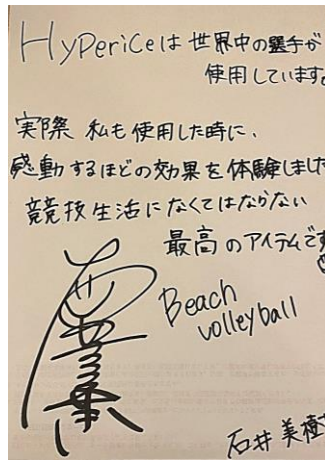 HyPeriCeは世界中の選手が
使用しています。
実際 私も使用した時に、
感動するほどの効果を体験しました
競技生活になくてはならない
最高のアイテムです
Beach
volleyball
石井美樹